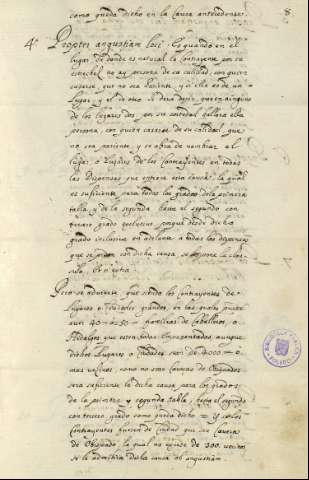 como queda dicho en la Causa antecedente.
8
4ª Propter angustiam loci. Es quando en el
lugar de donde es natural la contrayente por su
estrechez no ay persona de su calidad con quien
casarse, que no sea Pariente, y si ella es de un
Lugar, y el de otro se deve dezir que en ninguno
de los lugares dos por su cortedad hallara otra
persona, con quien casarse de su calidad que
no sea pariente, y se abra de nombrar el
lugar, o lugares de los Contrayentes en todas
las Dispensas que entrare esta causa; la qual
es suficiente para todos los grados de la primera
tabla y de la segunda hasta el segundo con
tercero grado exclusive porque desde dicho
grado inclusive en adelante a todas las dispensas
que se piden con dicha causa, se le pone la clau-
sula
Pero se advierte que siendo los Contrayentes de
Lugares o Ciudades grandes, en las quales puede
aver 40 o 50 familias de Caballeros o
Hidalgos que esten todas Emparentadas, aunque
dichos Lugares o Ciudades sean de 4000 o
mas vezinos, como no sean Cavezas de Obispados
sera suficiente la dicha causa para los grados
de la primera y segunda tabla, hasta el segundo
con tercero grado como queda dicho = Y si los
Contrayentes fuesen de Ciudad que sea Caveza
de Obispado, la qual no exceda de 300 vecinos
se le admitira dicha causa ob angustiam